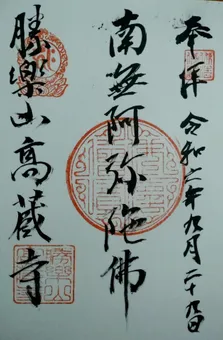 奉拝 令和六年九月二十九日
南無阿弥陀佛
勝樂山高蔵寺